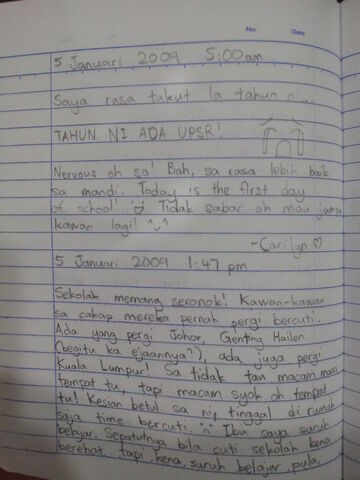 No. Date
5 Januari 2009 5:00am
Saya rasa takut la tahun ni...
TAHUN NI ADA UPSR!
Nervous oh sa! Bah, sa rasa lebih baik
sa mandi. Today is the first day
of school! Tidak sabar oh mau jumpa
kawan lagi! ^_^
-Carilyn ♡
5 Januari 2009 1:47 pm
Sekolah memang seronok! Kawan-kawan
sa cakap mereka pernah pergi bercuti.
Ada yang pergi Johor, Genting Hailen
(begitu ka ejaannya?), ada juga pergi
Kuala Lumpur! Sa tidak tau macam mana
tempat tu, tapi macam syok oh tempat
tu! Kesian betul sa ni, tinggal di rumah
saja time bercuti. :( Ibu saya suruh
belajar. Sepatutnya bila cuti sekolah kena
berehat tapi kena suruh belajar pula,